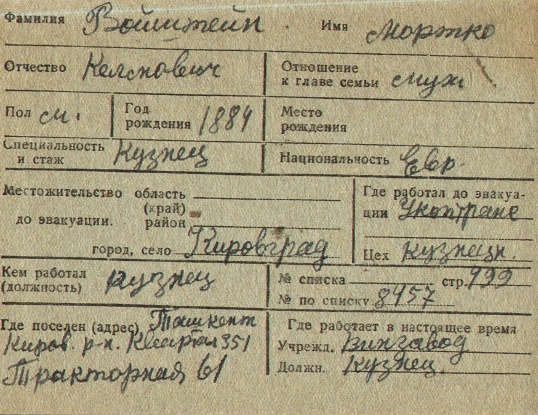 Фамилия Войштейн Имя Мортко
Отчество Келмнович Отношение к главе семьи муж
Пол м. Год рождения 1884 Место рождения
Специальность и стаж Кузнец Национальность Евр.
Местожительство область
(край)
до эвакуации. район
город, село Кировград
Где работал до эвакуа-
ции Укптранс
Цех кузнечн.
Кем работал
(должность) кузнец
№ списка стр. 499
№ по списку 8457
Где поселен (адрес) Ташкент
Киров. р-н. Квартал 351
Тракторная 61
Где работает в настоящее время
Учрежд. Винзавод
Должн. Кузнец.